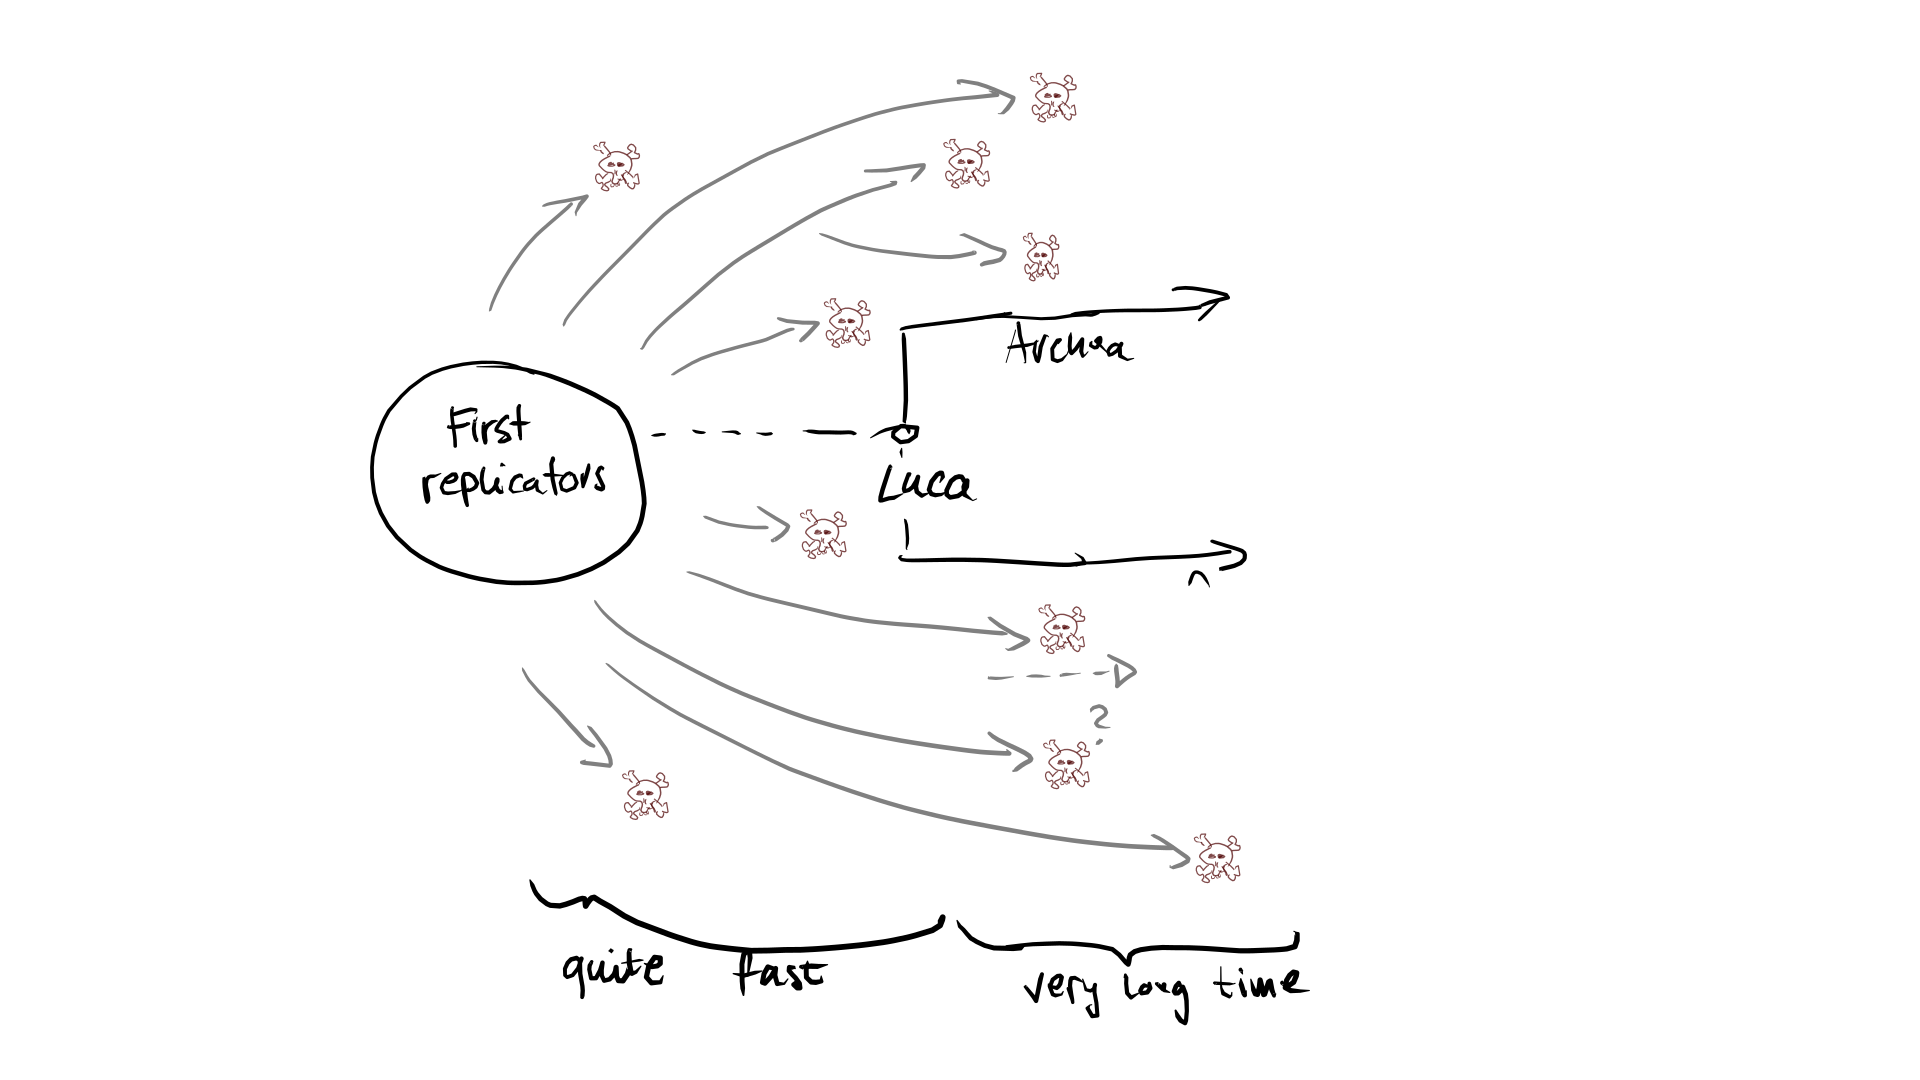 First
replicators
Archaa
Luca
?
quite fast
very long time